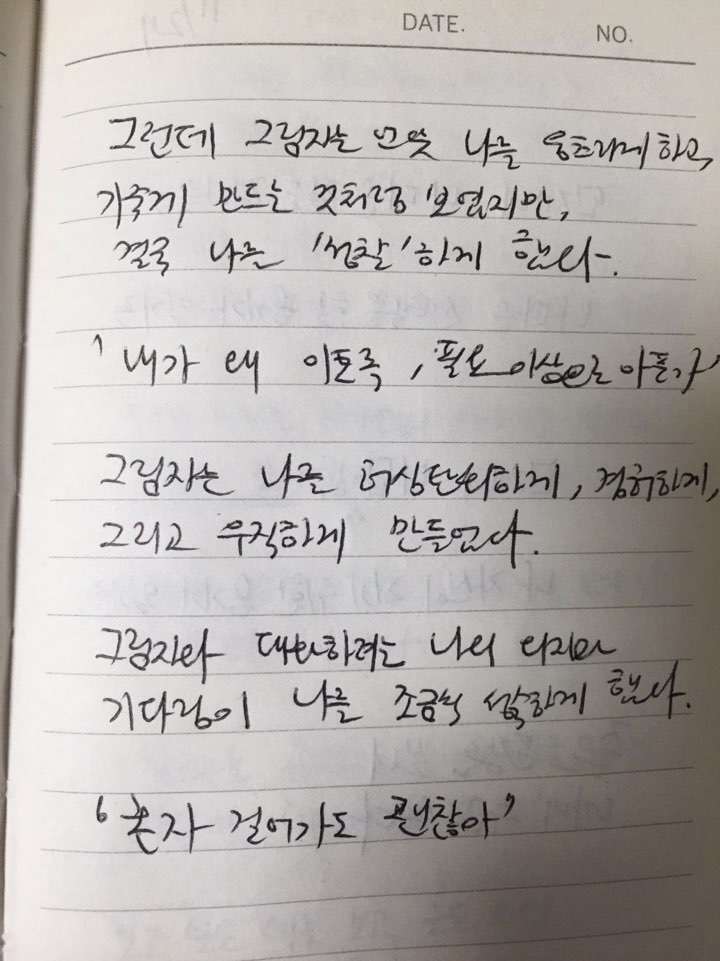 DATE.
NO.
그런데 그림자는 언뜻 나를 움츠리게 하고,
가죽게 만드는 것처럼 보였지만,
결국 나를 '성찰'하게 했다.
'내가 왜 이토록, 필요 이상으로 아플까'
그림자는 나를 더 단단하게, 겸허하게,
그리고 우직하게 만들었다.
그림자와 대화하려는 나의 의지와
기다림이 나를 조금씩 성장하게 했다.
'혼자 걸어가도 괜찮아'